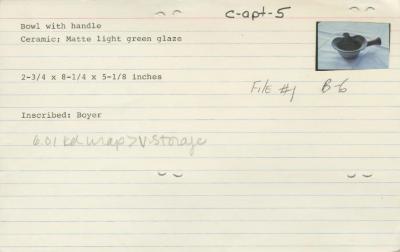 c-apt-5
Bowl with handle
Ceramic; Matte light green glaze
2-3/4 x 8-1/4 x 5-1/8 inches
File #1 B-6
Inscribed: Boyer
6.01 kd wrap > V. Storage